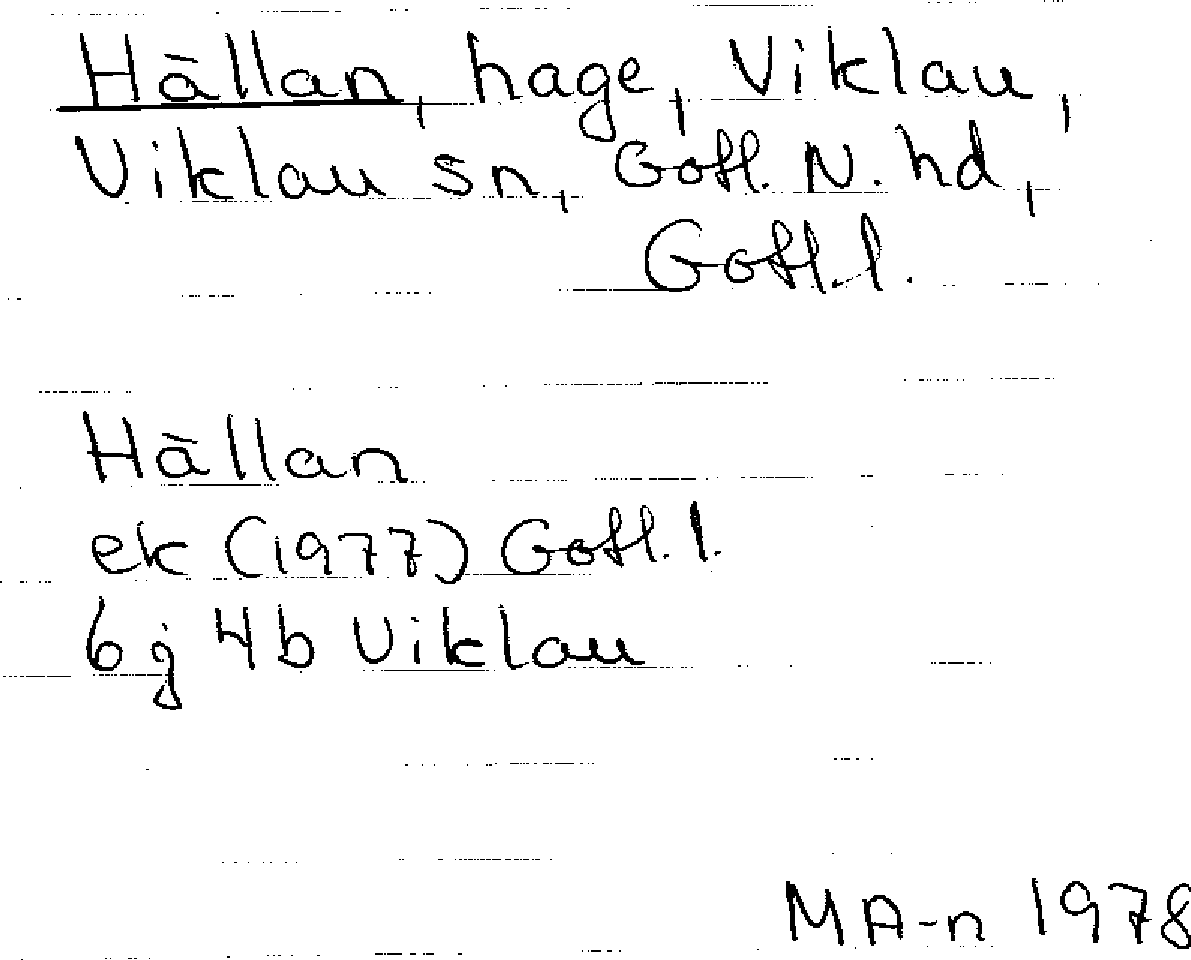 Hällan, hage, Viklau,
Viklau sn, Gotl. N. hd,
Gotl. l.
Hällan
ek (1977) Gotl. l.
6j 4b Viklau
MA-n 1978